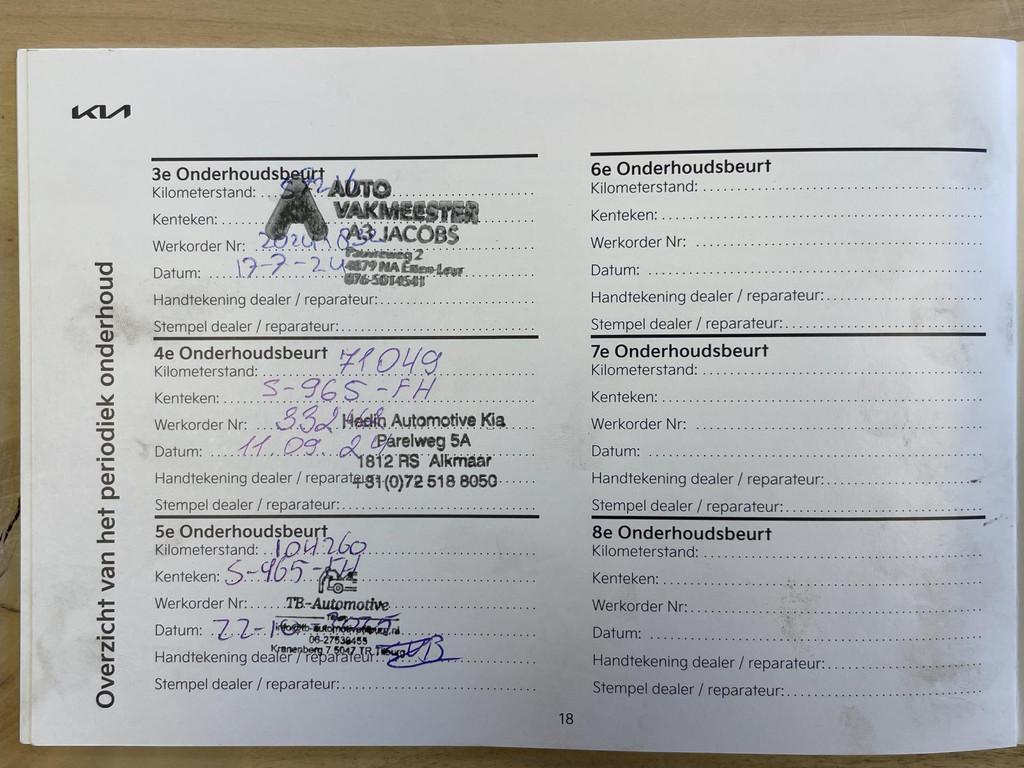 KIA
Overzicht van het periodiek onderhoud
3e Onderhoudsbeurt
Kilometerstand:
Kenteken:
AUTO
VAKMEESTER
AJ JACOBS
Werkorder Nr:
Datum: 17-7-24
Pauvreweg 2
4879 NA Etten-Leur
076-5014541
Handtekening dealer / reparateur:
Stempel dealer / reparateur:
4e Onderhoudsbeurt
Kilometerstand: 71049
Kenteken: S-965-FH
Werkorder Nr:
Datum: 11.09.24
Hedin Automotive Kia
Parelweg 5A
1812 RS Alkmaar
+31(0)72 518 8050
Handtekening dealer / reparateur:
Stempel dealer / reparateur:
5e Onderhoudsbeurt
Kilometerstand: 104260
Kenteken: S-965-FH
Werkorder Nr:
TB-Automotive
Datum:
06-27539455
Kranenberg 7 5047 TR Tilburg
Handtekening dealer / reparateur:
Stempel dealer / reparateur:
6e Onderhoudsbeurt
Kilometerstand:
Kenteken:
Werkorder Nr:
Datum:
Handtekening dealer / reparateur:
Stempel dealer / reparateur:
7e Onderhoudsbeurt
Kilometerstand:
Kenteken:
Werkorder Nr:
Datum:
Handtekening dealer / reparateur:
Stempel dealer / reparateur:
8e Onderhoudsbeurt
Kilometerstand:
Kenteken:
Werkorder Nr:
Datum:
Handtekening dealer / reparateur:
Stempel dealer / reparateur:
18